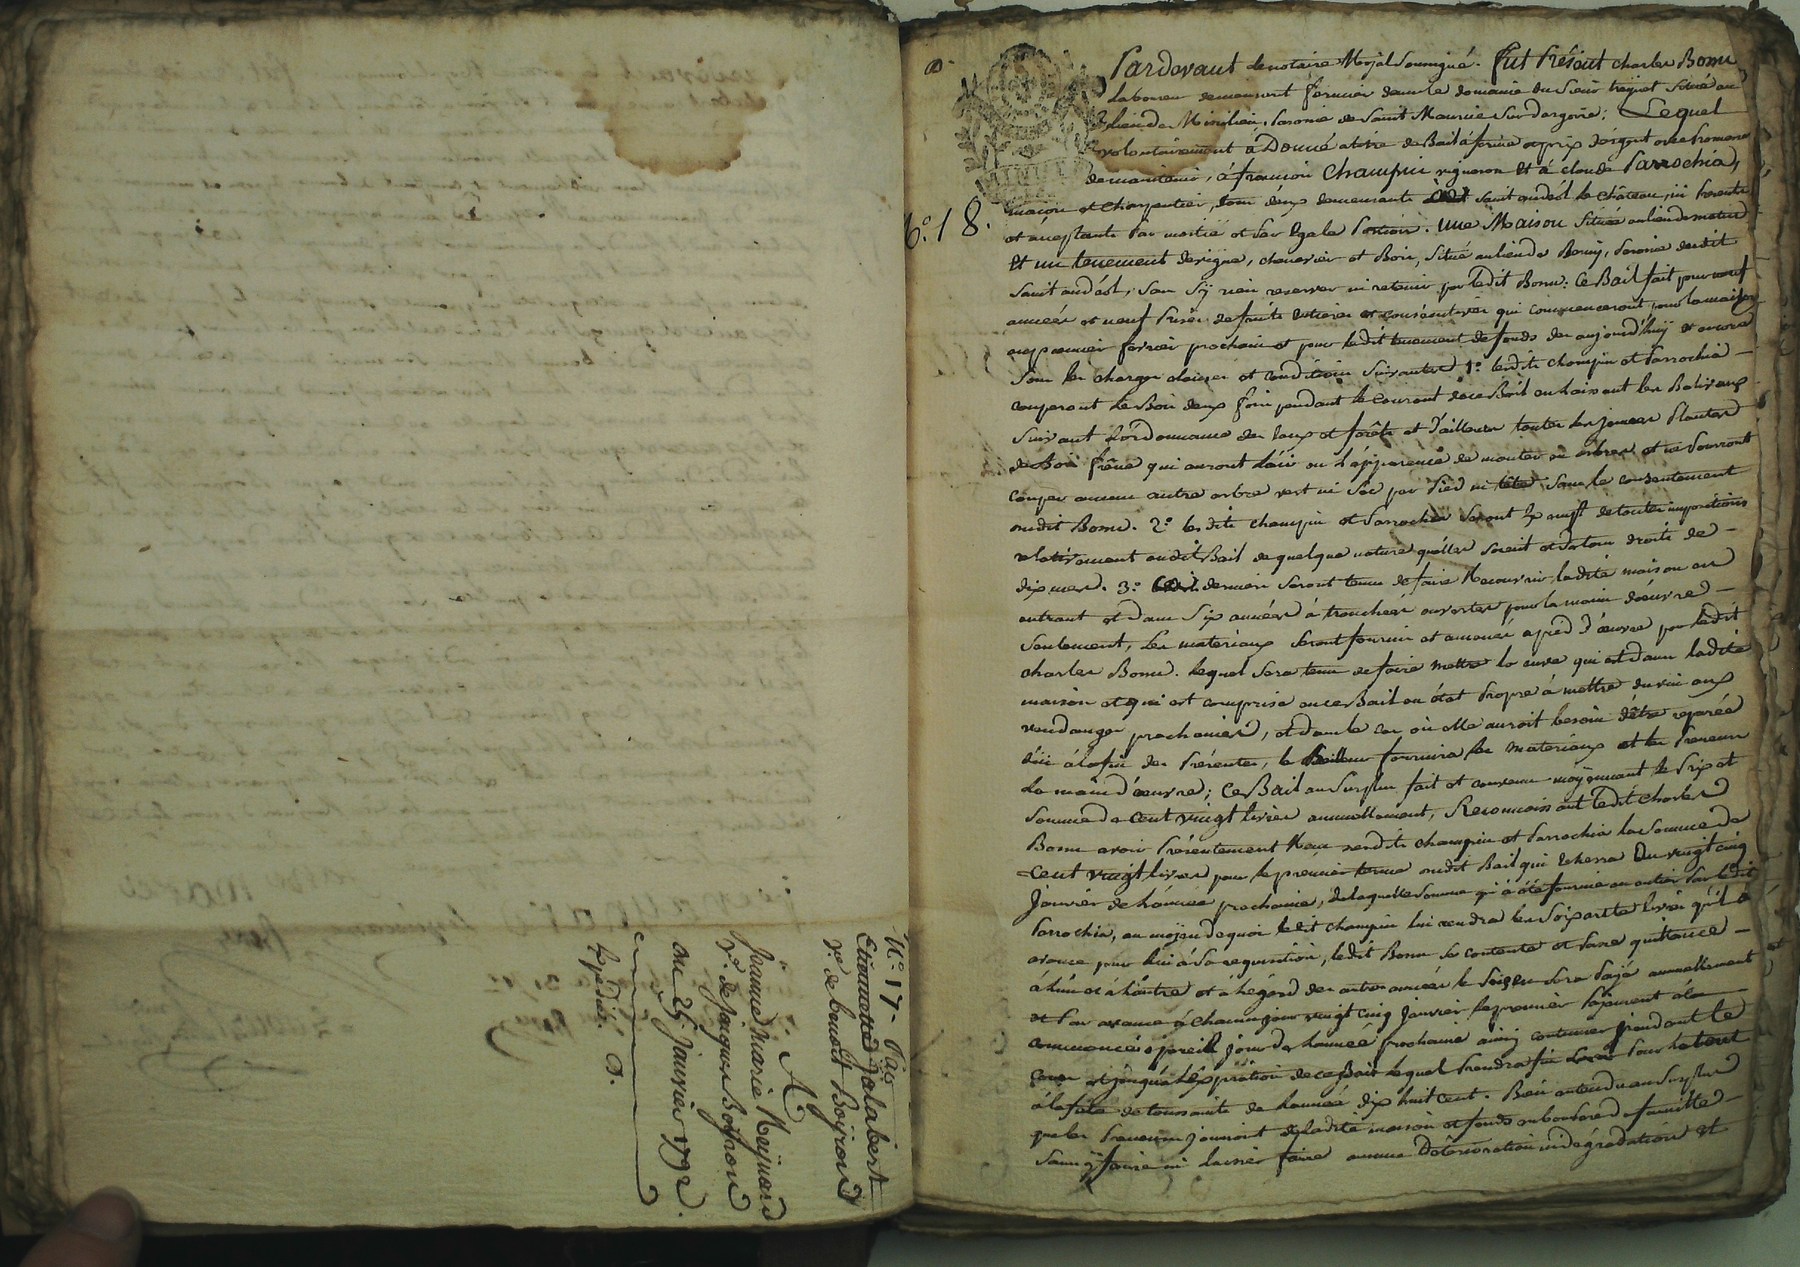 N.° 17. Par
Etiennette Jalabert
Ve. de benoit Boÿron
A
Jeanne Marie Reynard
Ve. de Jacques Boyron
du 25. janvier 1792.
Expédié.
N.° 18.
Pardevant le notaire Royal soussigné. fut Présent charles Bonu
Laboureur demeurant fermier dans le domaine du sieur situé au
lieu de Mivilieu, Paroisse de Saint Maurice Sur dargoire; Lequel
volontairement à Donné a titre de Bail à ferme a prix d'argent avec Promesse
de maintenir, à françois Champin vigneron Et à claude Parrochia,
maçon et charpentier, tous deux demeurants à Saint andéol le château, ici Presents
et acceptants Par moitié et Par Egale Portion. Une Maison Située au lieu de
Et un tenement de vigne, chenevier et Bois, Situé au lieu de Paroisse dudit
Saint andéol, Sans S'ÿ rien reserver ni retenir par ledit Bonu: Ce Bail fait pour neuf
années et neuf Prises de fruits entieres et consécutives qui commenceront pour la maison
au premier fevrier prochain et pour ledit tenement de fonds des aujourd'huÿ et encore
Sous les charges clauses et conditions Suivantes 1.° lesdits champin et Parrochia
couperont le Bois deux fois pendant le courant de ce Bail en laissant les Baliveaux
Suivant L'ordonnance des Eaux et forêts et d'ailleurs toutes les jeunes Plantes
de Bois frêne qui auront l'air ou l'apparence de monter en arbres et ne Pourront
couper aucun autre arbre vert ni Sec par Pied ni tête Sans le consentement
dudit Bonu. 2.° lesdits champin et Parrochia Seront Exempts de toutes impositions
relativement audit Bail de quelque nature quelles Soient et Surtout droits de
dixmes. 3.° ces derniers Seront tenus de faire Recouvrir ladite maison en
entrant et dans Six années à tranchées ouvertes pour la main d'oeuvre
Seulement, Les materiaux Seront fournis et amenés a pied d'oeuvre par ledit
charles Bonu. lequel Sera tenu de faire mettre la cuve qui est dans ladite
maison et qui est comprise en ce Bail en état Propre à mettre du vin aux
vendanges prochaines, et dans le cas où elle auroit besoin d'être reparée
d'ici à la fin des Présentes, le Bailleur fournira les materiaux et les Preneurs
La main d'oeuvre; Ce Bail au Surplus fait et convenu moÿennant le Prix et
Somme de Cent vingt livres annuellement, Reconnoissant ledit charles
Bonu avoir Présentement Reçu desdits champin et Parrochia la Somme de
Cent vingt livres pour le premier terme dudit Bail qui Echerra Du vingt cinq
Janvier de l'année prochaine, de laquelle Somme qui à été fournie en entier Par ledit
Parrochia, au moÿen de quoi ledit champin lui rendra les Soixante livres qu'il à
avancé pour lui à Sa requisition, ledit Bonu Se contente et Passe quittance
à l'un et à l'autre et à l'égard des autres années le Sera Payé annuellement
et Par avance à chacun jour vingt cinq Janvier le premier Payement à
commencer a pareil jour de l'année prochaine ainsi continuer pendant le
cours et jusqu'à l'Expiration de ce Bail lequel Prendra fin Pour le tout
à la fête de toussaints de l'année dix huit cent. Bien entendu au Surplus
que les Preneurs jouiront de ladite maison et fonds en bons Peres de famille
Sans ÿ faire ni laisser faire aucune Déterioration ni dégradation et